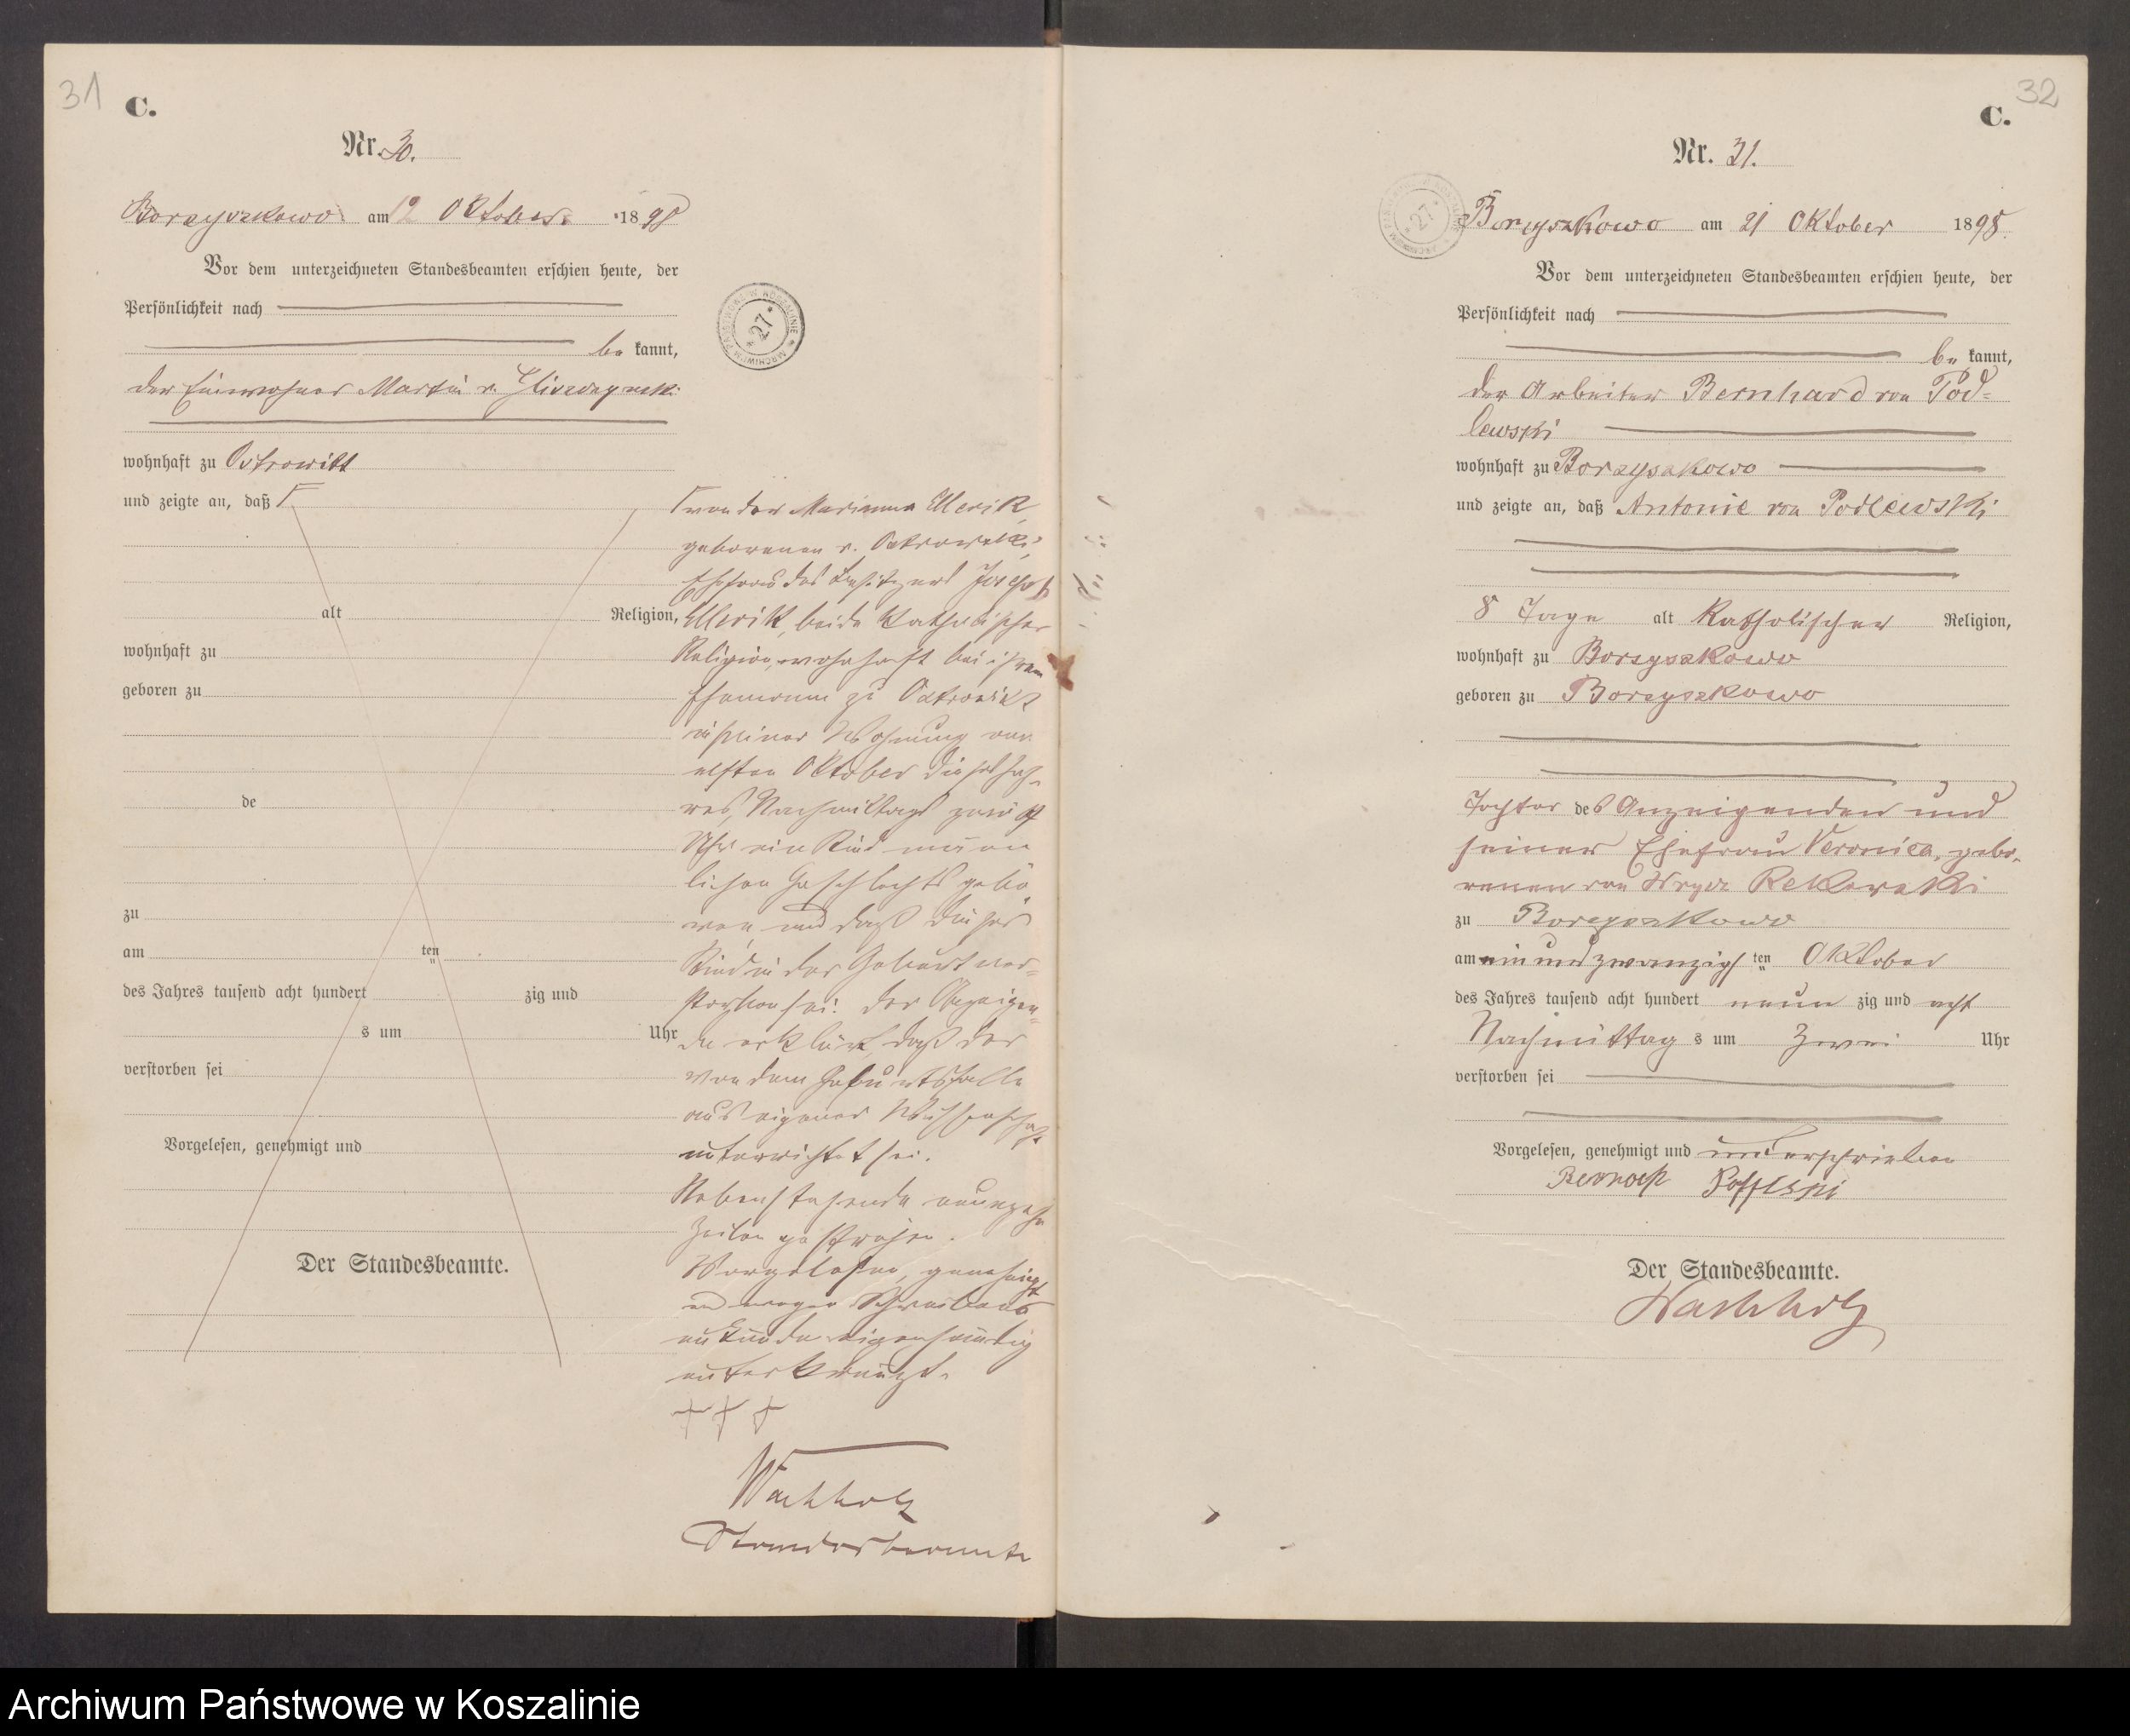 31
C.
Nr. 30.
Borzyszkowo am 12 Oktober 1898
Vor dem unterzeichneten Standesbeamten erschien heute, der
Persönlichkeit nach
be kannt,
der Einwohner Martin v.
wohnhaft zu Ostrowitt
und zeigte an, daß
alt Religion,
wohnhaft zu
geboren zu
de
zu
am ten
des Jahres tausend acht hundert zig und
s um Uhr
verstorben sei
Vorgelesen, genehmigt und
Der Standesbeamte.
von der Marianna Ellerik,
geborenen v. Ostrowski,
Ehefrau des Besitzers Joseph
Ellerik, beide katholischer
Religion, wohnhaft bei ihrem
Ehemann zu Ostrowitt
in seiner Wohnung am
elften Oktober dieses Jah-
res, Nachmittags zwölf
Uhr ein Kind männ
lichen Geschlechts gebo
ren und daß dieses
Kind in der Geburt ver-
storben sei. Der Anzeigen-
de erklärt, daß der
von dem Geburtsfalle
aus eigener Wissenschaft
unterrichtet sei.
Nebenstehende neunzehn
Zeilen gestrichen.
Vorgelesen, genehmigt
und wegen Schreibens
unkunde eigenhändig
unterkreuzt.
+++
Wachholz
Standesbeamte
ARCHIWUM PAŃSTWOWE W KOSZALINIE
* 27 *
32
C.
Nr. 31.
Borzyszkowo am 21 Oktober 1898.
Vor dem unterzeichneten Standesbeamten erschien heute, der
Persönlichkeit nach
be kannt,
der Arbeiter Bernhard von Pod-
lewski
wohnhaft zu Borzyszkowo
und zeigte an, daß Antonie von Podlewski
8 Tage alt katholischer Religion,
wohnhaft zu Borzyszkowo
geboren zu Borzyszkowo
Tochter des Anzeigenden und
seiner Ehefrau Veronica, gebo-
renen von Wrycz Rekowski
zu Borzyszkowo
am einundzwanzigs ten Oktober
des Jahres tausend acht hundert neun zig und acht
Nachmittag s um zwei Uhr
verstorben sei
Vorgelesen, genehmigt und unterschrieben
Der Standesbeamte.
Wachholz
* 27 *
Archiwum Państwowe w Koszalinie